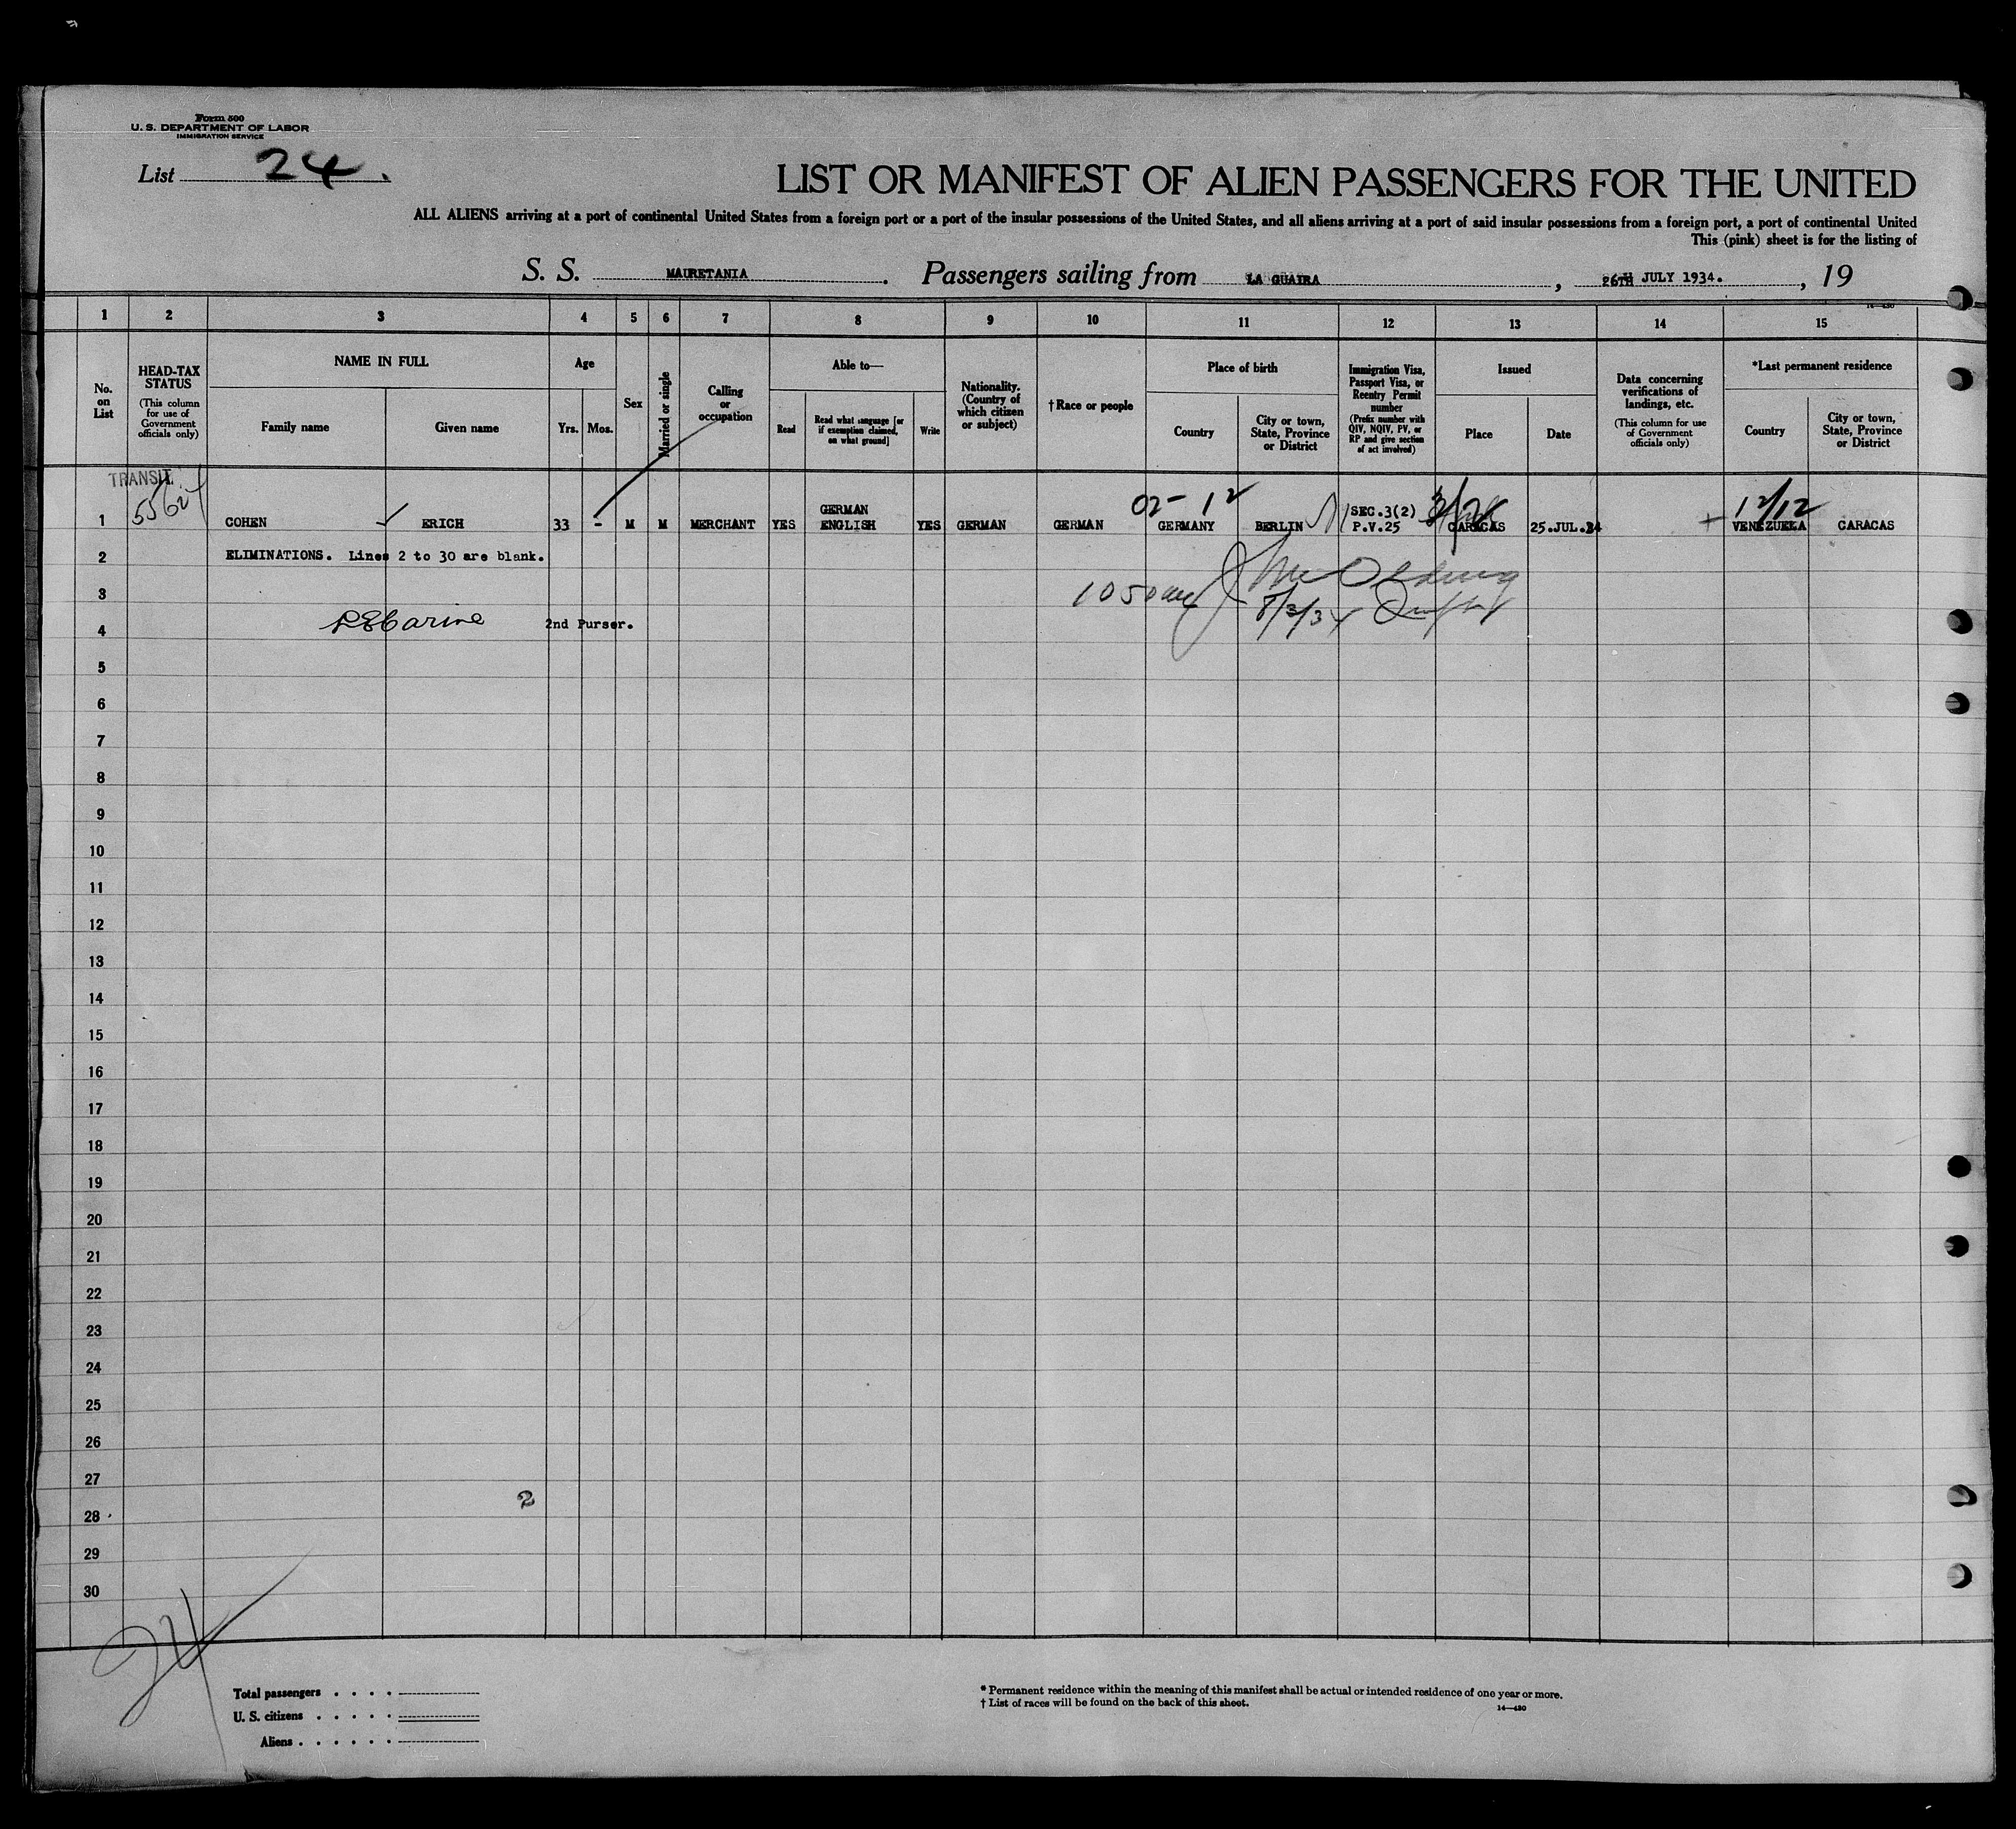 Form 500
U. S. DEPARTMENT OF LABOR
IMMIGRATION SERVICE
List 24.
LIST OR MANIFEST OF ALIEN PASSENGERS FOR THE UNITED
ALL ALIENS arriving at a port of continental United States from a foreign port or a port of the insular possessions of the United States, and all aliens arriving at a port of said insular possessions from a foreign port, a port of continental United
This (pink) sheet is for the listing of
S. S. MAURETANIA. Passengers sailing from LA GUAIRA, 26TH JULY 1934., 19
14—430
1 2 3 4 5 6 7 8 9 10 11 12 13 14 15
No. on List
HEAD-TAX STATUS
(This column for use of Government officials only)
NAME IN FULL
Family name
Given name
Age
Yrs. Mos.
Sex
Married or single
Calling or occupation
Able to—
Read
Read what language [or if exemption claimed, on what ground]
Write
Nationality. (Country of which citizen or subject)
† Race or people
Place of birth
Country
City or town, State, Province or District
Immigration Visa, Passport Visa, or Reentry Permit number
(Prefix number with QIV, NQIV, PV, or RP and give section of act involved)
Issued
Place
Date
Data concerning verifications of landings, etc.
(This column for use of Government officials only)
*Last permanent residence
Country
City or town, State, Province or District
TRANSIT
02- 12
12/12
GERMAN
SEC.3(2)
1 COHEN ERICH 33 - M M MERCHANT YES ENGLISH YES GERMAN GERMAN GERMANY BERLIN P.V.25 CARACAS 25.JUL.34 + VENEZUELA CARACAS
2 ELIMINATIONS. Lines 2 to 30 are blank.
3
8/3/34
4 2nd Purser.
5
6
7
8
9
10
11
12
13
14
15
16
17
18
19
20
21
22
23
24
25
26
27
2
28
29
30
24
Total passengers . . . .
U. S. citizens . . . . .
Aliens . . . . . .
* Permanent residence within the meaning of this manifest shall be actual or intended residence of one year or more.
† List of races will be found on the back of this sheet.
14—430